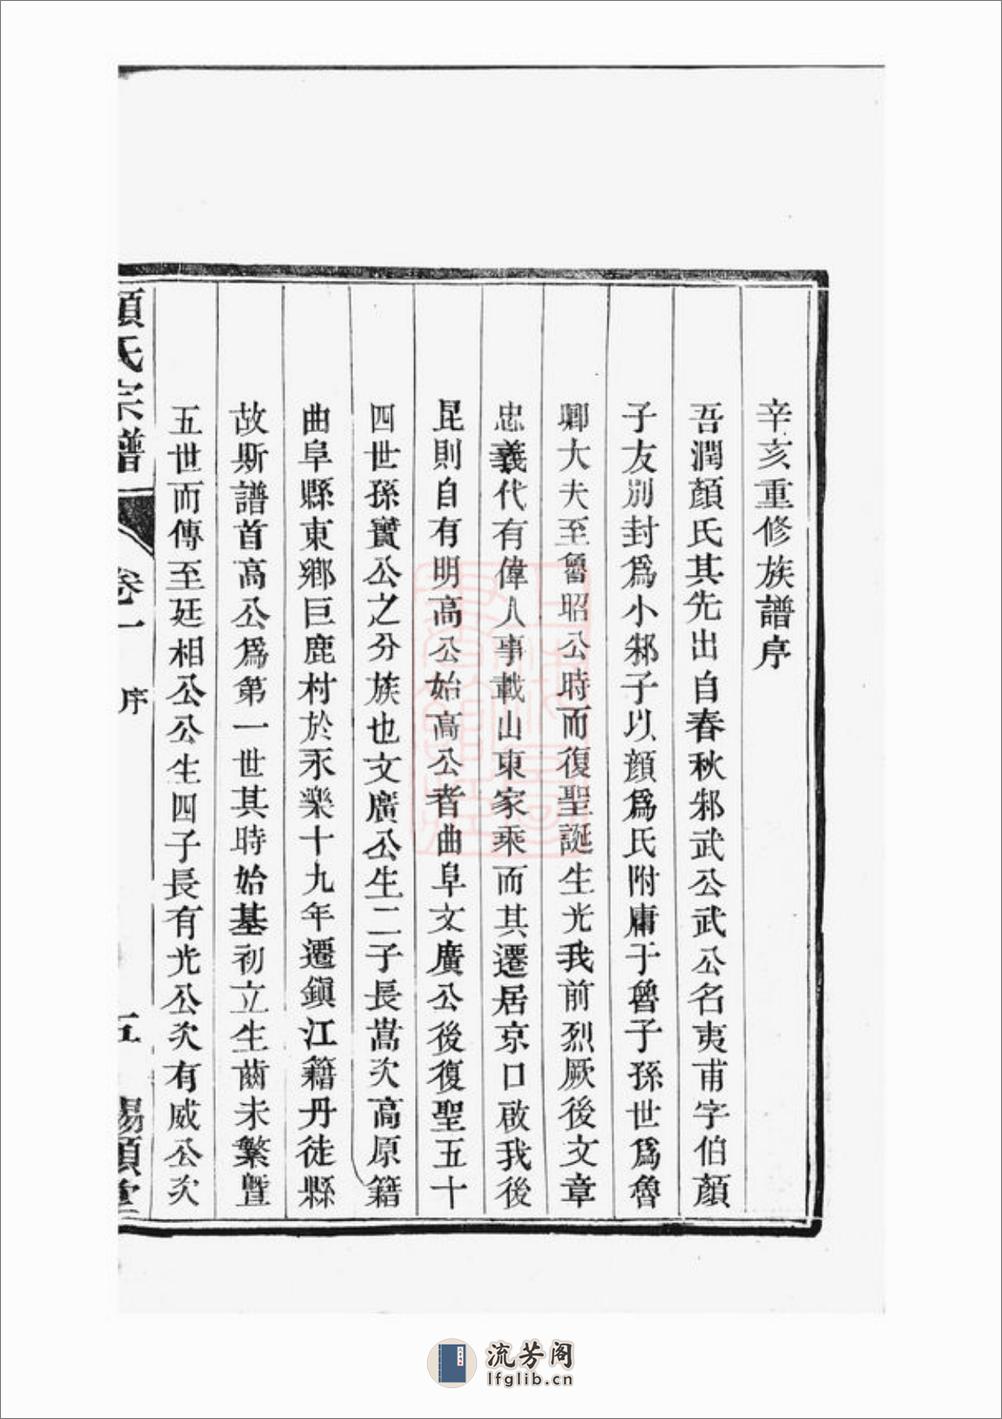 辛亥重修族譜序
吾潤顏氏其先出自春秋邾武公武公名夷甫字伯顏
子友別封爲小邾子以顏爲氏附庸于魯子孫世爲魯
卿大夫至魯昭公時而復聖誕生光我前烈厥後文章
忠義代有偉人事載山東家乘而其遷居京口啟我後
昆則自有明高公始高公者曲阜文廣公後復聖五十
四世孫實公之分族也文廣公生二子長嵩次高原籍
曲阜縣東鄉巨鹿村於永樂十九年遷鎭江籍丹徒縣
故斯譜首高公爲第一世其時始基初立生齒未繁暨
五世而傳至廷相公公生四子長有光公次有威公次
顏氏宗譜 卷一 序 五 錫類堂
流芳阁
lfglib.cn